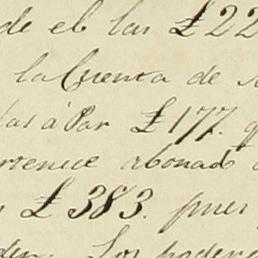 de el las £22
la Cuenta de
las á Par £177.
abonad
£383. pues
Los poderes